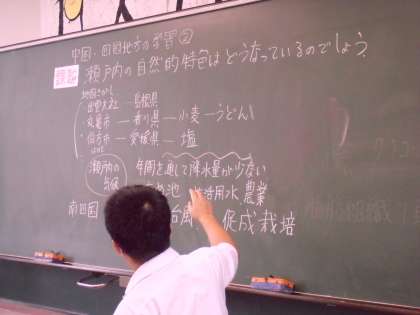 中国・四国地方の学習②
瀬戸内の自然的特色はどうなっているのでしょう。
地図さがし
出雲大社 — 島根県
丸亀市 — 香川県 — 小麦 — うどん
伯方市 — 愛媛県 — 塩
はかた
瀬戸内の気候 年間を通して降水量が少ない
池 活用水、農業
南四国 台風 促成栽培